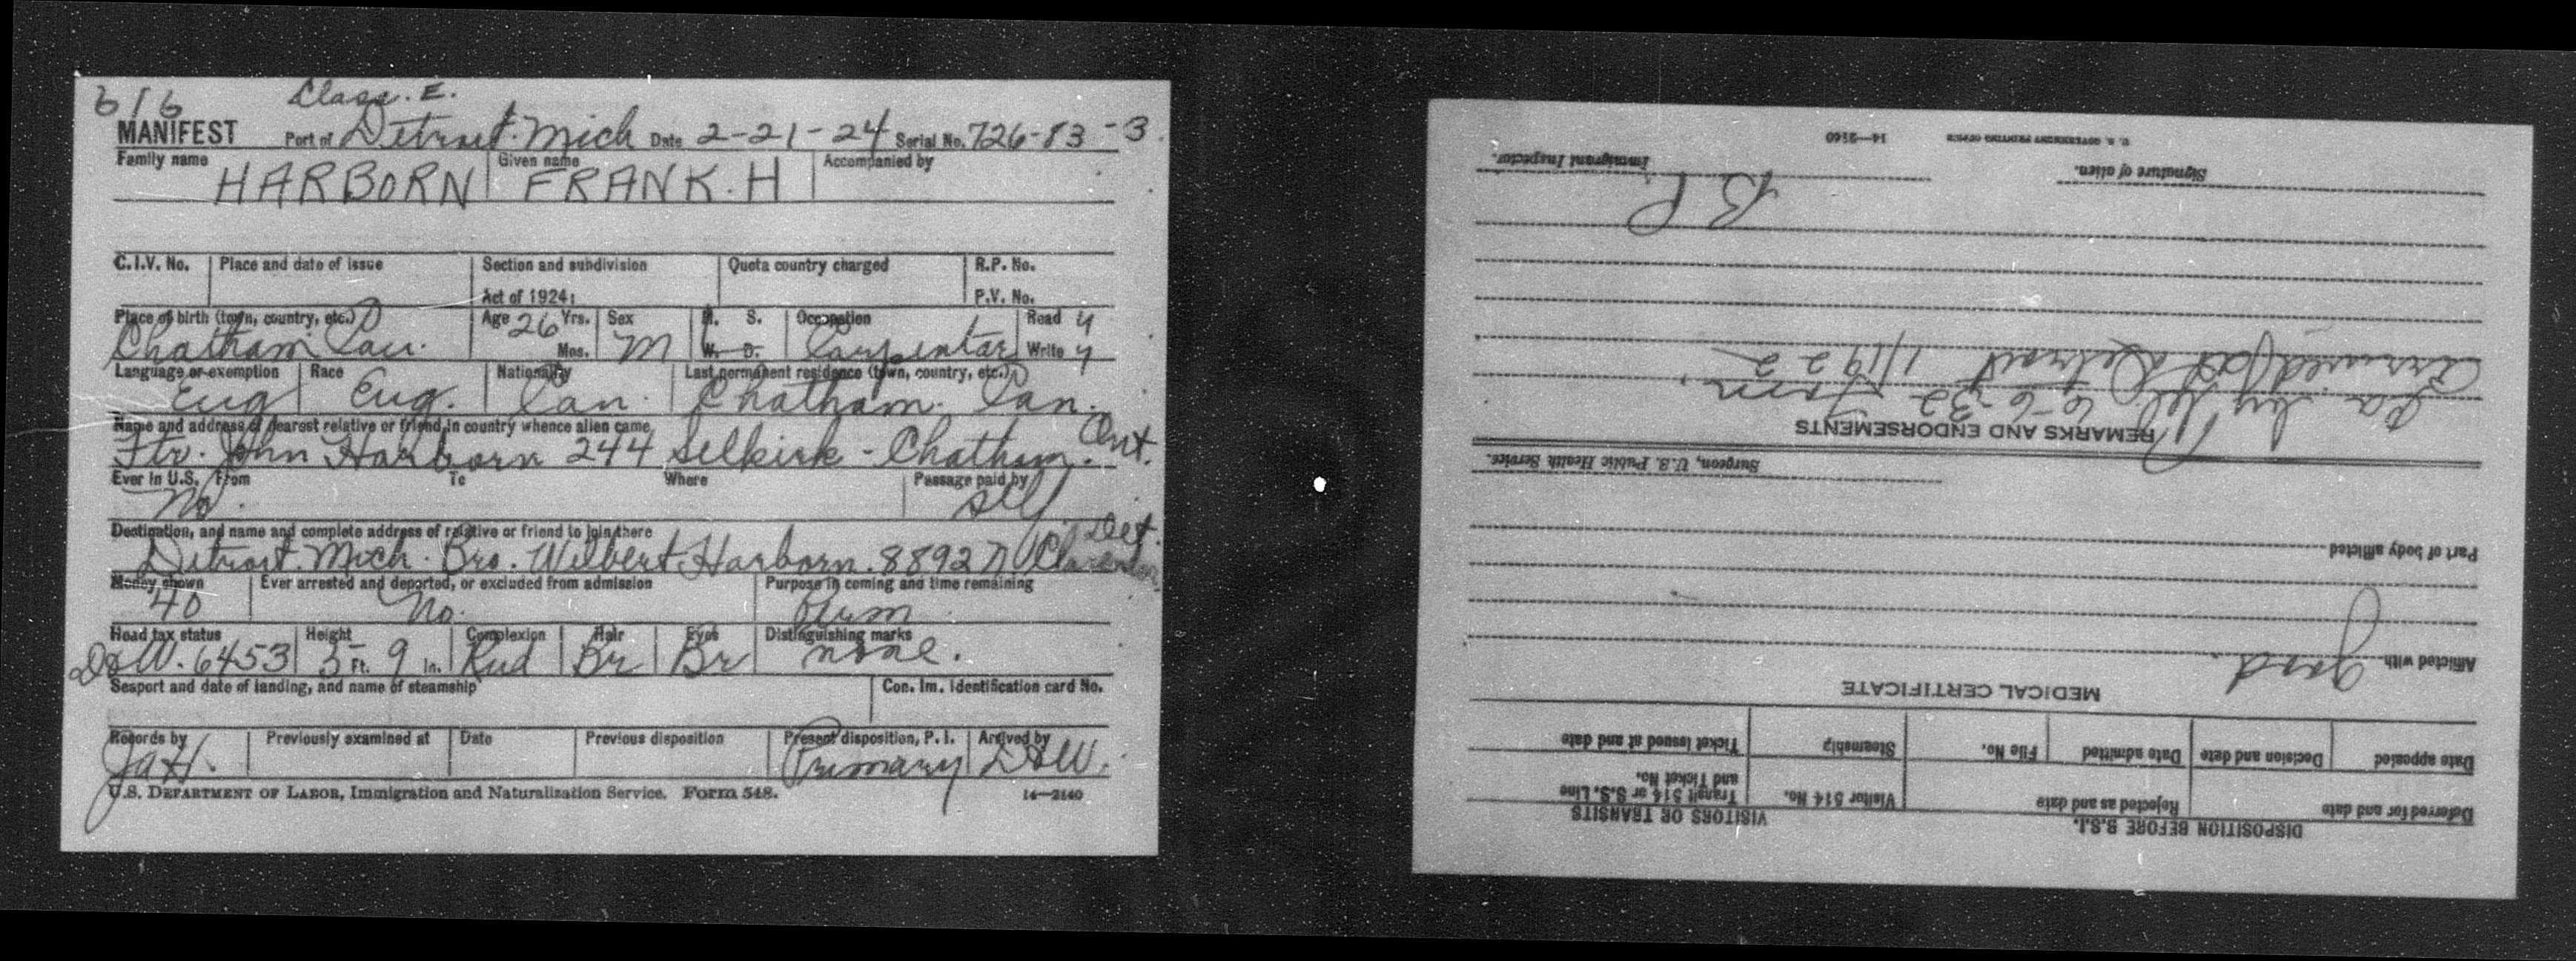 616 Class. E.
MANIFEST Port of Detroit. Mich Date 2-21-24 Serial No. 726-83-3
Family name Given name Accompanied by
HARBORN FRANK. H
C.I.V. No. Place and date of issue Section and subdivision Quota country charged R.P. No.
Act of 1924: P.V. No.
Place of birth (town, country, etc.) Age 26 Yrs. Sex M. S. Occupation Read y
Chatham Can. Mos. M W. D. Carpenter Write y
Language or exemption Race Nationality Last permanent residence (town, country, etc.)
Eng Eng. Can. Chatham. Can.
Name and address of nearest relative or friend in country whence alien came
Ftr. John Harborn 244 Selkirk - Chatham. Ont.
Ever in U.S. From To Where Passage paid by
No. self
Destination, and name and complete address of relative or friend to join there
Detroit. Mich. Bro. Wilbert Harborn. 8892 N Det.
Money shown Ever arrested and deported, or excluded from admission Purpose in coming and time remaining
40 No. Perm
Head tax status Height Complexion Hair Eyes Distinguishing marks
D&W. 6453 5 Ft. 9 In. Rud Br Br none.
Seaport and date of landing, and name of steamship Con. Im. Identification card No.
Records by Previously examined at Date Previous disposition Present disposition, P. I. Arrived by
JaH. Primary D&W.
U.S. DEPARTMENT OF LABOR, Immigration and Naturalization Service. FORM 548. 14—2140
DISPOSITION BEFORE B.S.I. VISITORS OR TRANSITS
Deferred for and date Rejected as and date Visitor 514 No. Transit 514 or S.S. Line and Ticket No.
Date appealed Decision and date Date admitted File No. Steamship Ticket issued at and date
MEDICAL CERTIFICATE
Afflicted with good.
Part of body afflicted
Surgeon, U.S. Public Health Service.
REMARKS AND ENDORSEMENTS
6-6-32
arrived at Detroit 1/1922
B P
Signature of alien. Immigrant Inspector.
U. S. GOVERNMENT PRINTING OFFICE 14—2140